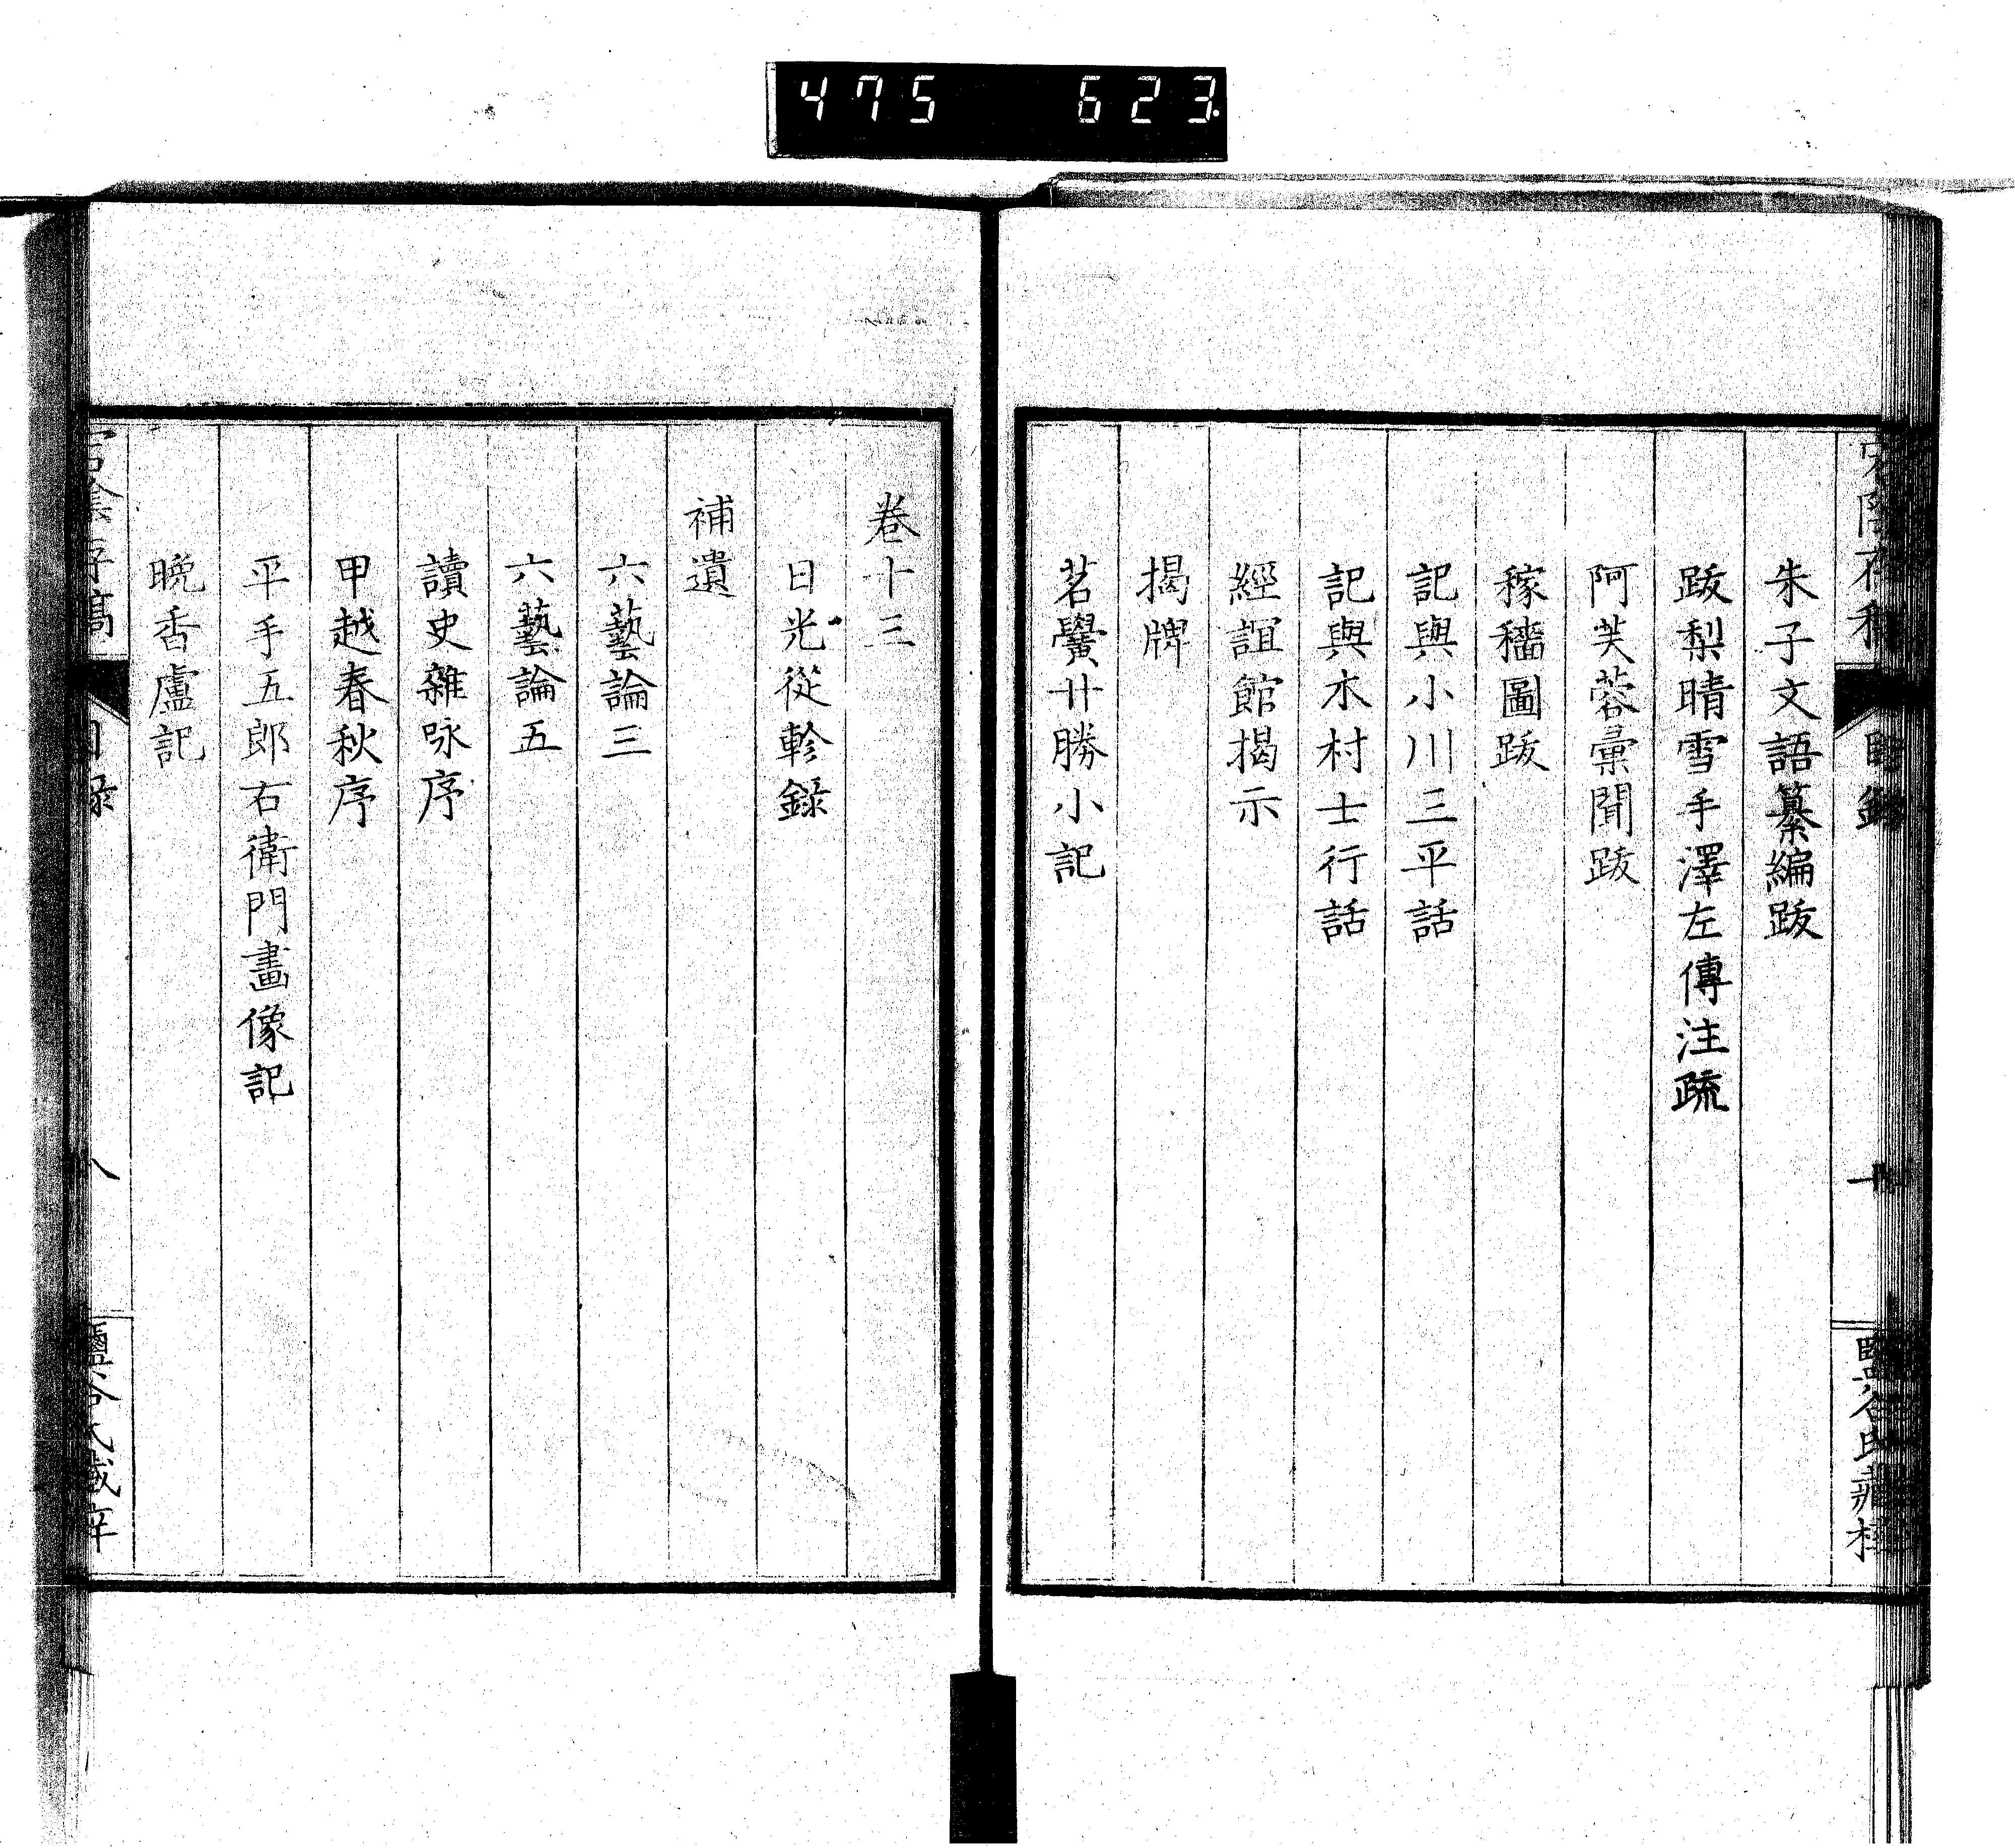 475 623
朱子文語纂編跋
跋梨晴雪手澤左傳注疏
阿芙蓉彙聞跋
稼穡圖跋
記與小川三平話
記與木村士行話
經誼館揭示
揭牌
茗黌廿勝小記
卷十三
日光從軫錄
補遺
六藝論三
六藝論五
讀史雜咏序
甲越春秋序
平手五郎右衛門畫像記
晩香廬記